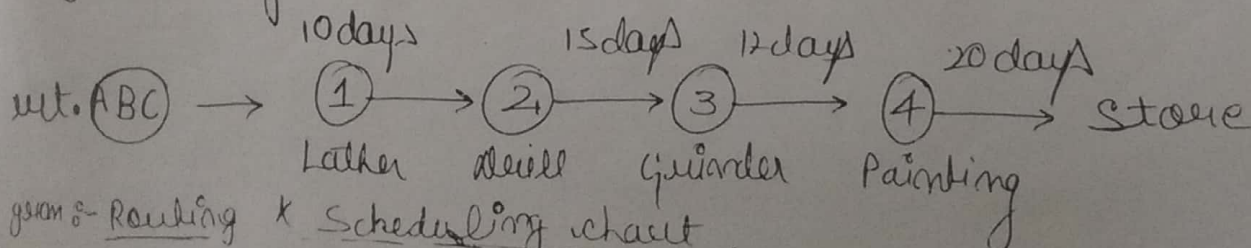 10 days 15 days 12 days 20 days
ABC → 1 → 2 → 3 → 4 → Store
Lather Drill Grinder Painting
Routing * Scheduling chart